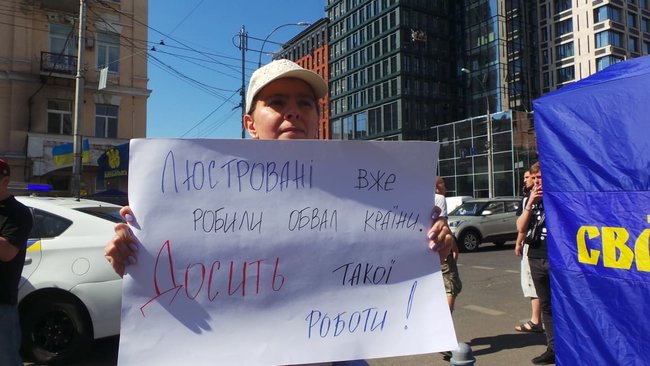 Люстровані вже
робили обвал країни.
Досить такої
роботи!
СВО